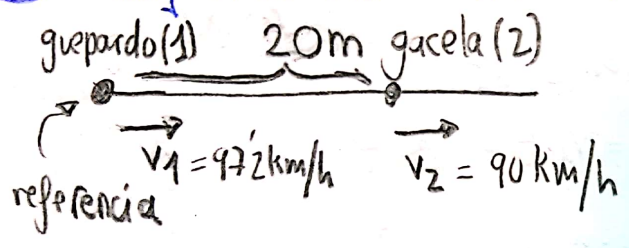 guepardo(1) 20m gacela(2)
v1 = 97'2km/h v2 = 90 km/h
referencia